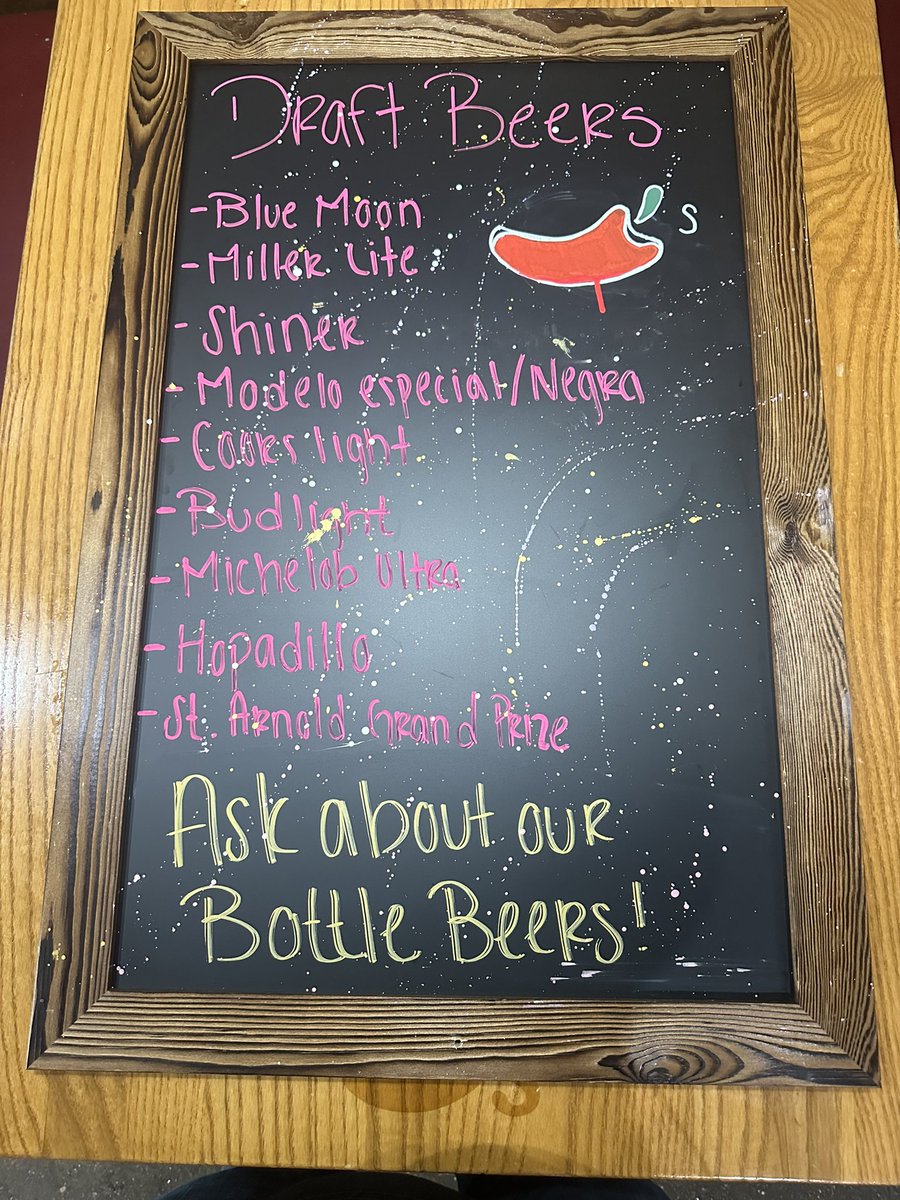 Draft Beers
-Blue Moon
-Miller Lite
s
-Shiner
-Modelo especial/Negra
-Coors light
-Bud light
-Michelob Ultra
-Hopadillo
-St. Arnold Grand Prize
Ask about our
Bottle Beers!